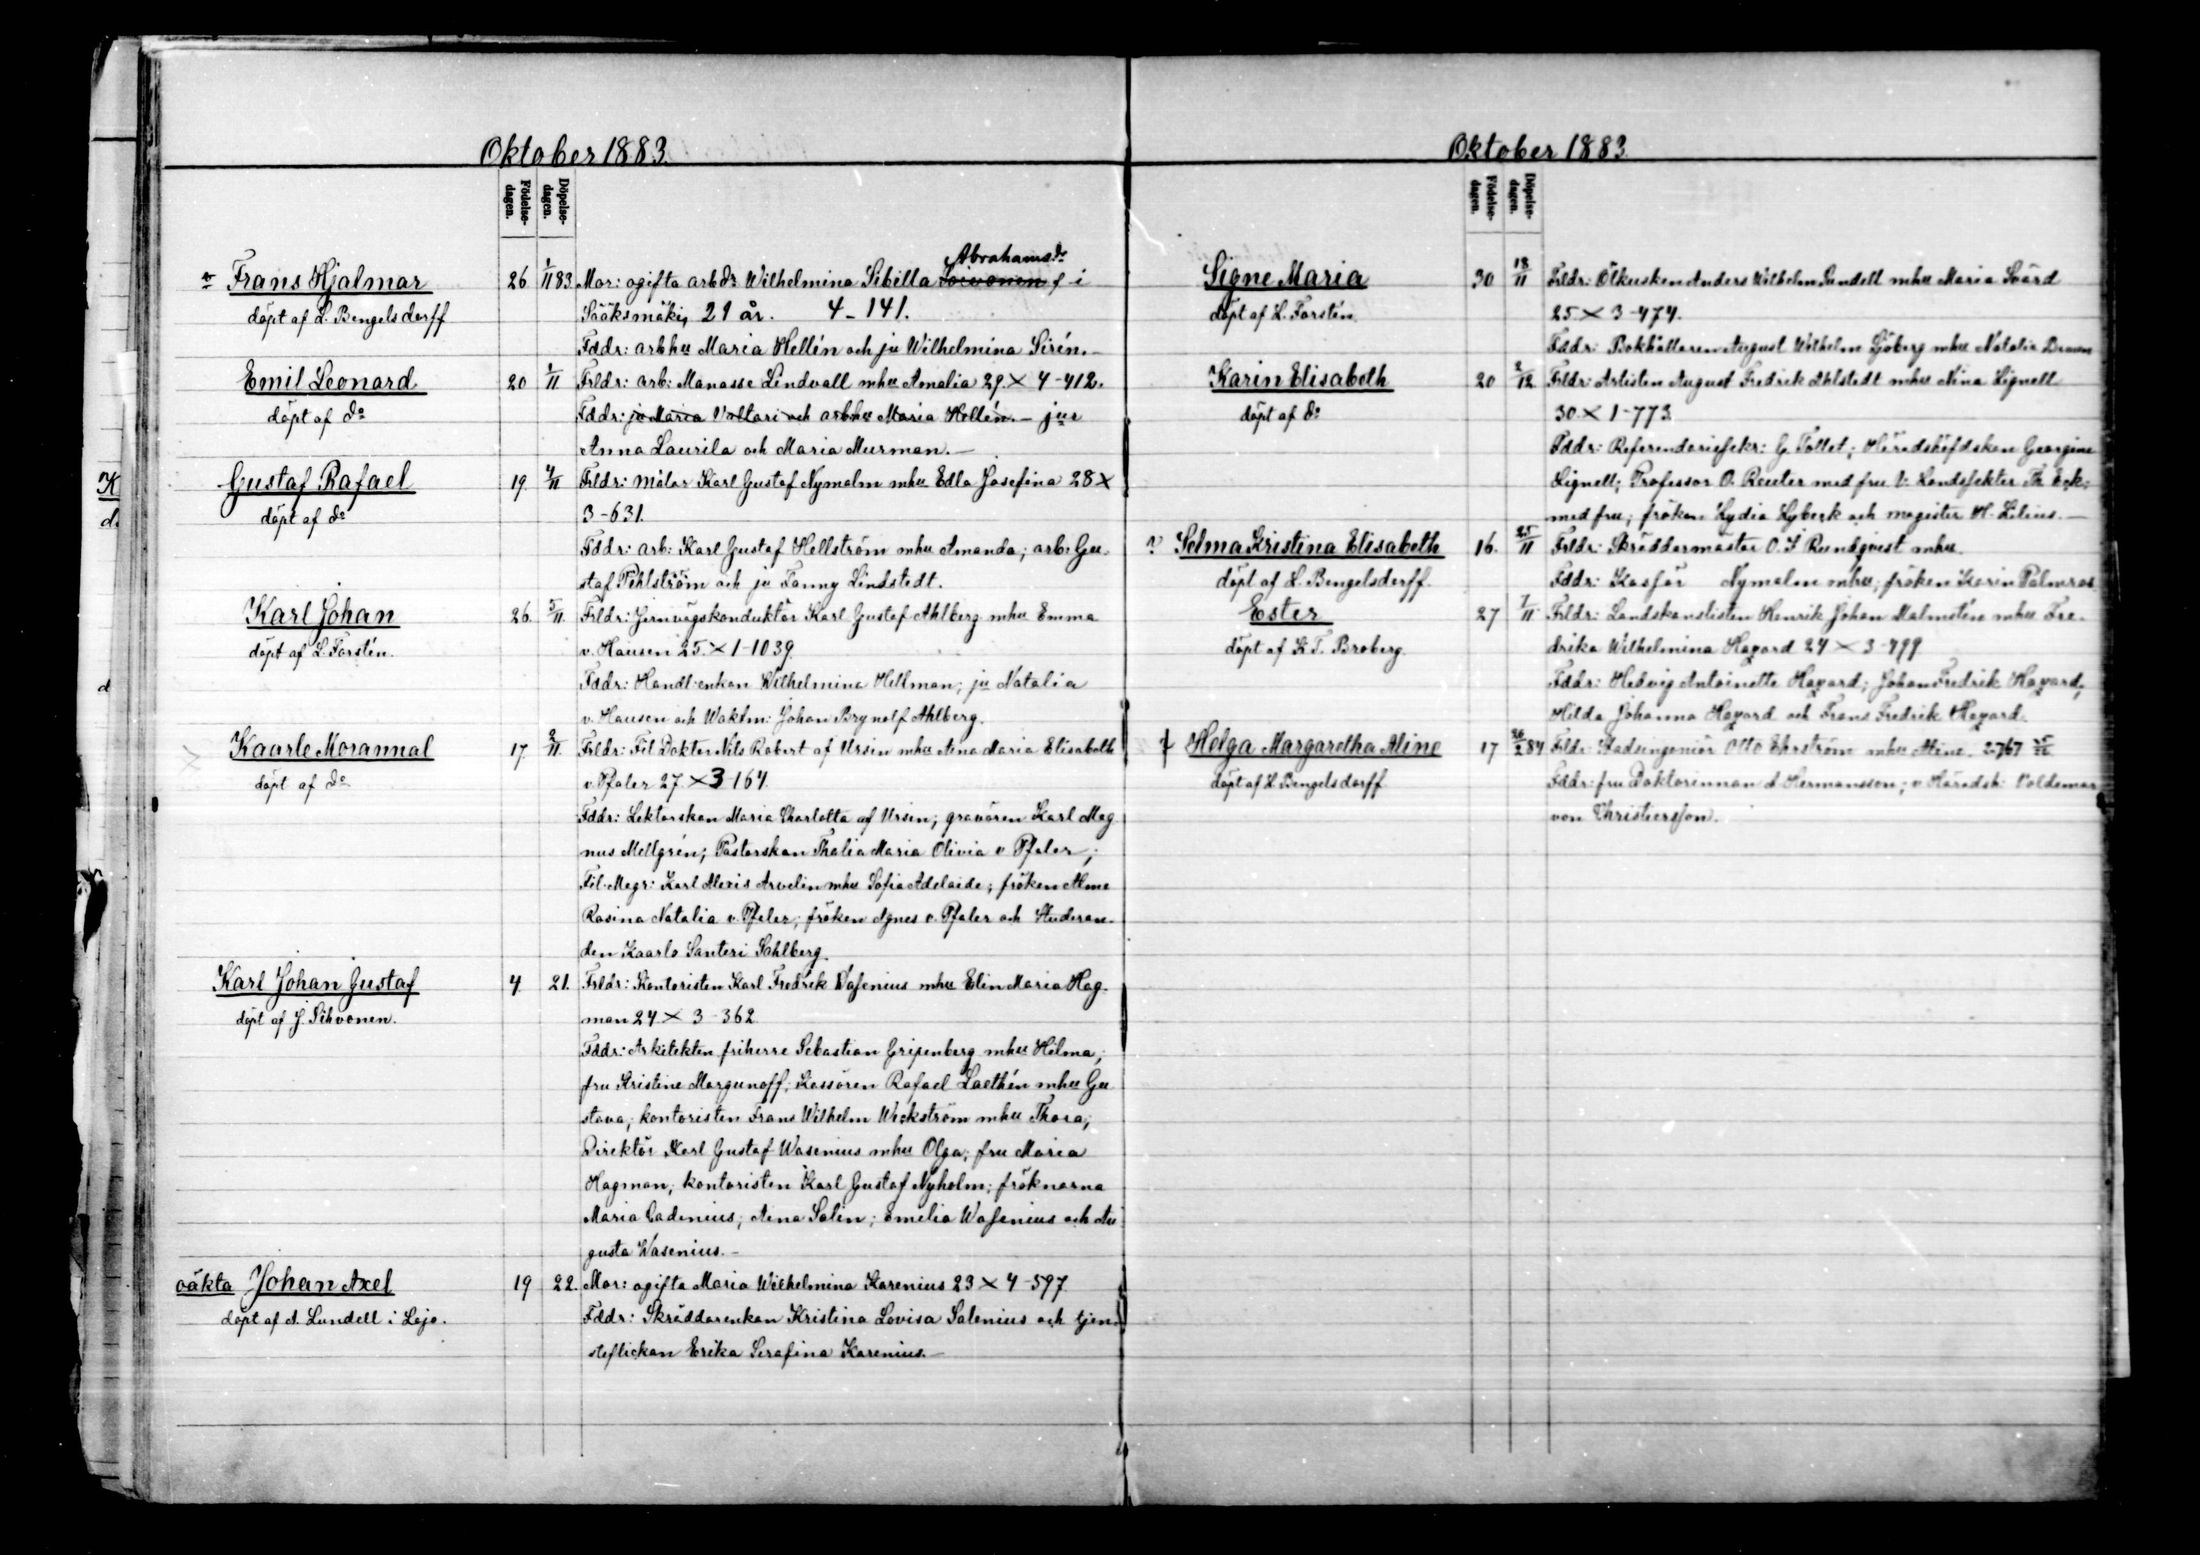 Oktober 1883.
Födelse-
dagen.
Döpelse-
dagen.
Frans Hjalmar 26. 1/11 83. Mor: ogifta arbdr Wilhelmina Sibilla Abrahamsdr Toivonen f i
döpt af L. Bengelsdorff Sääksmäki, 21 år. 4-141.
Fddr: arbhu Maria Hellén och ju Wilhelmina Sirén.-
Emil Leonard 20 1/11 Frldr: arb: Manasse Lindvall mhu Amalia 29. × 4-412.
döpt af do Fddr: ju Maria Valtari och arbhu Maria Hellén.- jur
Anna Laurila och Maria Murman.-
Gustaf Rafael 19. 4/11 Frldr: målar Karl Gustaf Nymalm mhu Edla Josefina 28 ×
döpt af do 3-631.
Fddr: arb: Karl Gustaf Hellström mhu Amanda; arb: Gu-
staf Pihlström och ju Fanny Lindstedt.
Karl Johan 26. 5/11 Frldr: Jernvägskonduktör Karl Gustaf Ahlberg mhu Emma
döpt af L. Forstén. v. Hausen 25. × 1-1039.
Fddr: Handl:enkan Wilhelmina Hellman; ju Natalia
v. Hausen och Waktm: Johan Brynolf Ahlberg.
Kaarle Morannal 17. 2/11. Frldr: Fil. Doktor Nils Robert af Ursin mhu Aina Maria Elisabeth
döpt af do v. Pfaler 27. × 3-164.
Fddr: Lektorskan Maria Charlotta af Ursin; gravören Karl Mag-
nus Mellgrén; Pastorskan Thalia Maria Olivia v. Pfaler;
Fil. Magr: Karl Alexis Arvelin mhu Sofia Adelaide; fröken Alma
Rosina Natalia v. Pfaler; fröken Agnes v. Pfaler och Studeran-
den Kaarlo Santeri Sahlberg.
Karl Johan Gustaf 4 21. Frldr: Kontoristen Karl Fredrik Wasenius mhu Elin Maria Hag-
döpt af J. Sihvonen. man 24. × 3-362.
Fddr: Arkitekten friherre Sebastian Gripenberg mhu Hilma;
fru Kristine Morgunoff; Kassören Rafael Laethén mhu Gu-
stava; kontoristen Frans Wilhelm Wickström mhu Thora;
Direktör Karl Gustaf Wasenius mhu Olga; fru Maria
Hagman; kontoristen Karl Gustaf Nyholm; fröknarna
Maria Cadenius; Aina Salin; Emelia Wasenius och Au-
gusta Wasenius.-
oäkta Johan Axel 19 22. Mor: ogifta Maria Wilhelmina Karenius 23 × 4-597.
döpt af A. Lundell i Lojo. Fddr: Skräddarenkan Kristina Lovisa Salenius och tjen-
steflickan Erika Serafina Karenius.-
Oktober 1883.
Födelse-
dagen.
Döpelse-
dagen.
Signe Maria 30 18/11 Frldr: Ölkusken Anders Wilhelm Lundell mhu Maria Svärd
döpt af L. Forstén. 25 × 3-474.
Fddr: Bokhållaren August Wilhelm Sjöberg mhu Natalia
Karin Elisabeth 20 2/12 Frldr: Artisten August Fredrik Ahlstedt mhu Nina Lignell
döpt af do 30. × 1-773.
Fddr: Referendariesekr: G. Tollet; Häradshöfdskan Georgine
Lignell; Professor O. Reuter med fru V: Landssekter Th. Eck:
med fru; fröken Lydia Lybeck och magister H. Lilius.-
Selma Kristina Elisabeth 16. 25/11 Frldr: Skräddarmästar O. F. Rundqvist mhu
döpt af L. Bengelsdorff. Fddr: Kassör Nymalm mhu; fröken Karin Palmros
Ester 27 1/11 Frldr: Landskanslisten Henrik Johan Malmstén mhu Fre-
döpt af K. T. Broberg. drika Wilhelmina Hagard 24 × 3-799
Fddr: Hedvig Antoinette Hagard; Johan Fredrik Hagard;
Hilda Johanna Hagard och Frans Fredrik Hagard.
† Helga Margaretha Aline 17 26/2 84 Fldr: Stadsingeniör Otto Ehrström mhu Aline. 2-767
döpt af L. Bengelsdorff. Fddr: fru Doktorinnan A. Hermansson; v. Häradsh: Voldemar
von Christiersson.